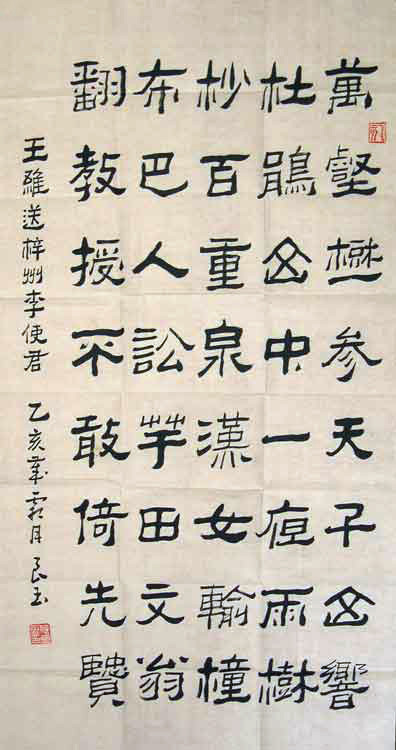 萬壑樹参天千山響
杜鵑山中一夜雨樹
杪百重泉漢女輸橦
布巴人訟芋田文翁
翻教授不敢倚先賢
王維送梓州李使君 乙亥歲霜月良玉